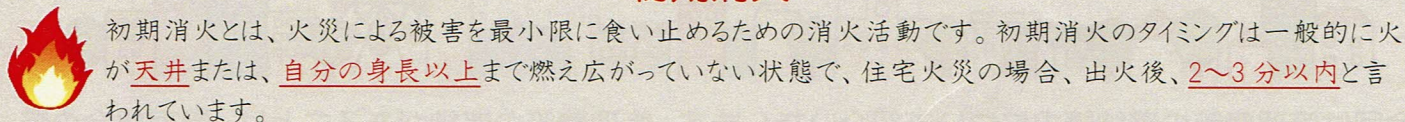 初期消火とは、火災による被害を最小限に食い止めるための消火活動です。初期消火のタイミングは一般的に火
が天井または、自分の身長以上まで燃え広がっていない状態で、住宅火災の場合、出火後、2～3分以内と言
われています。